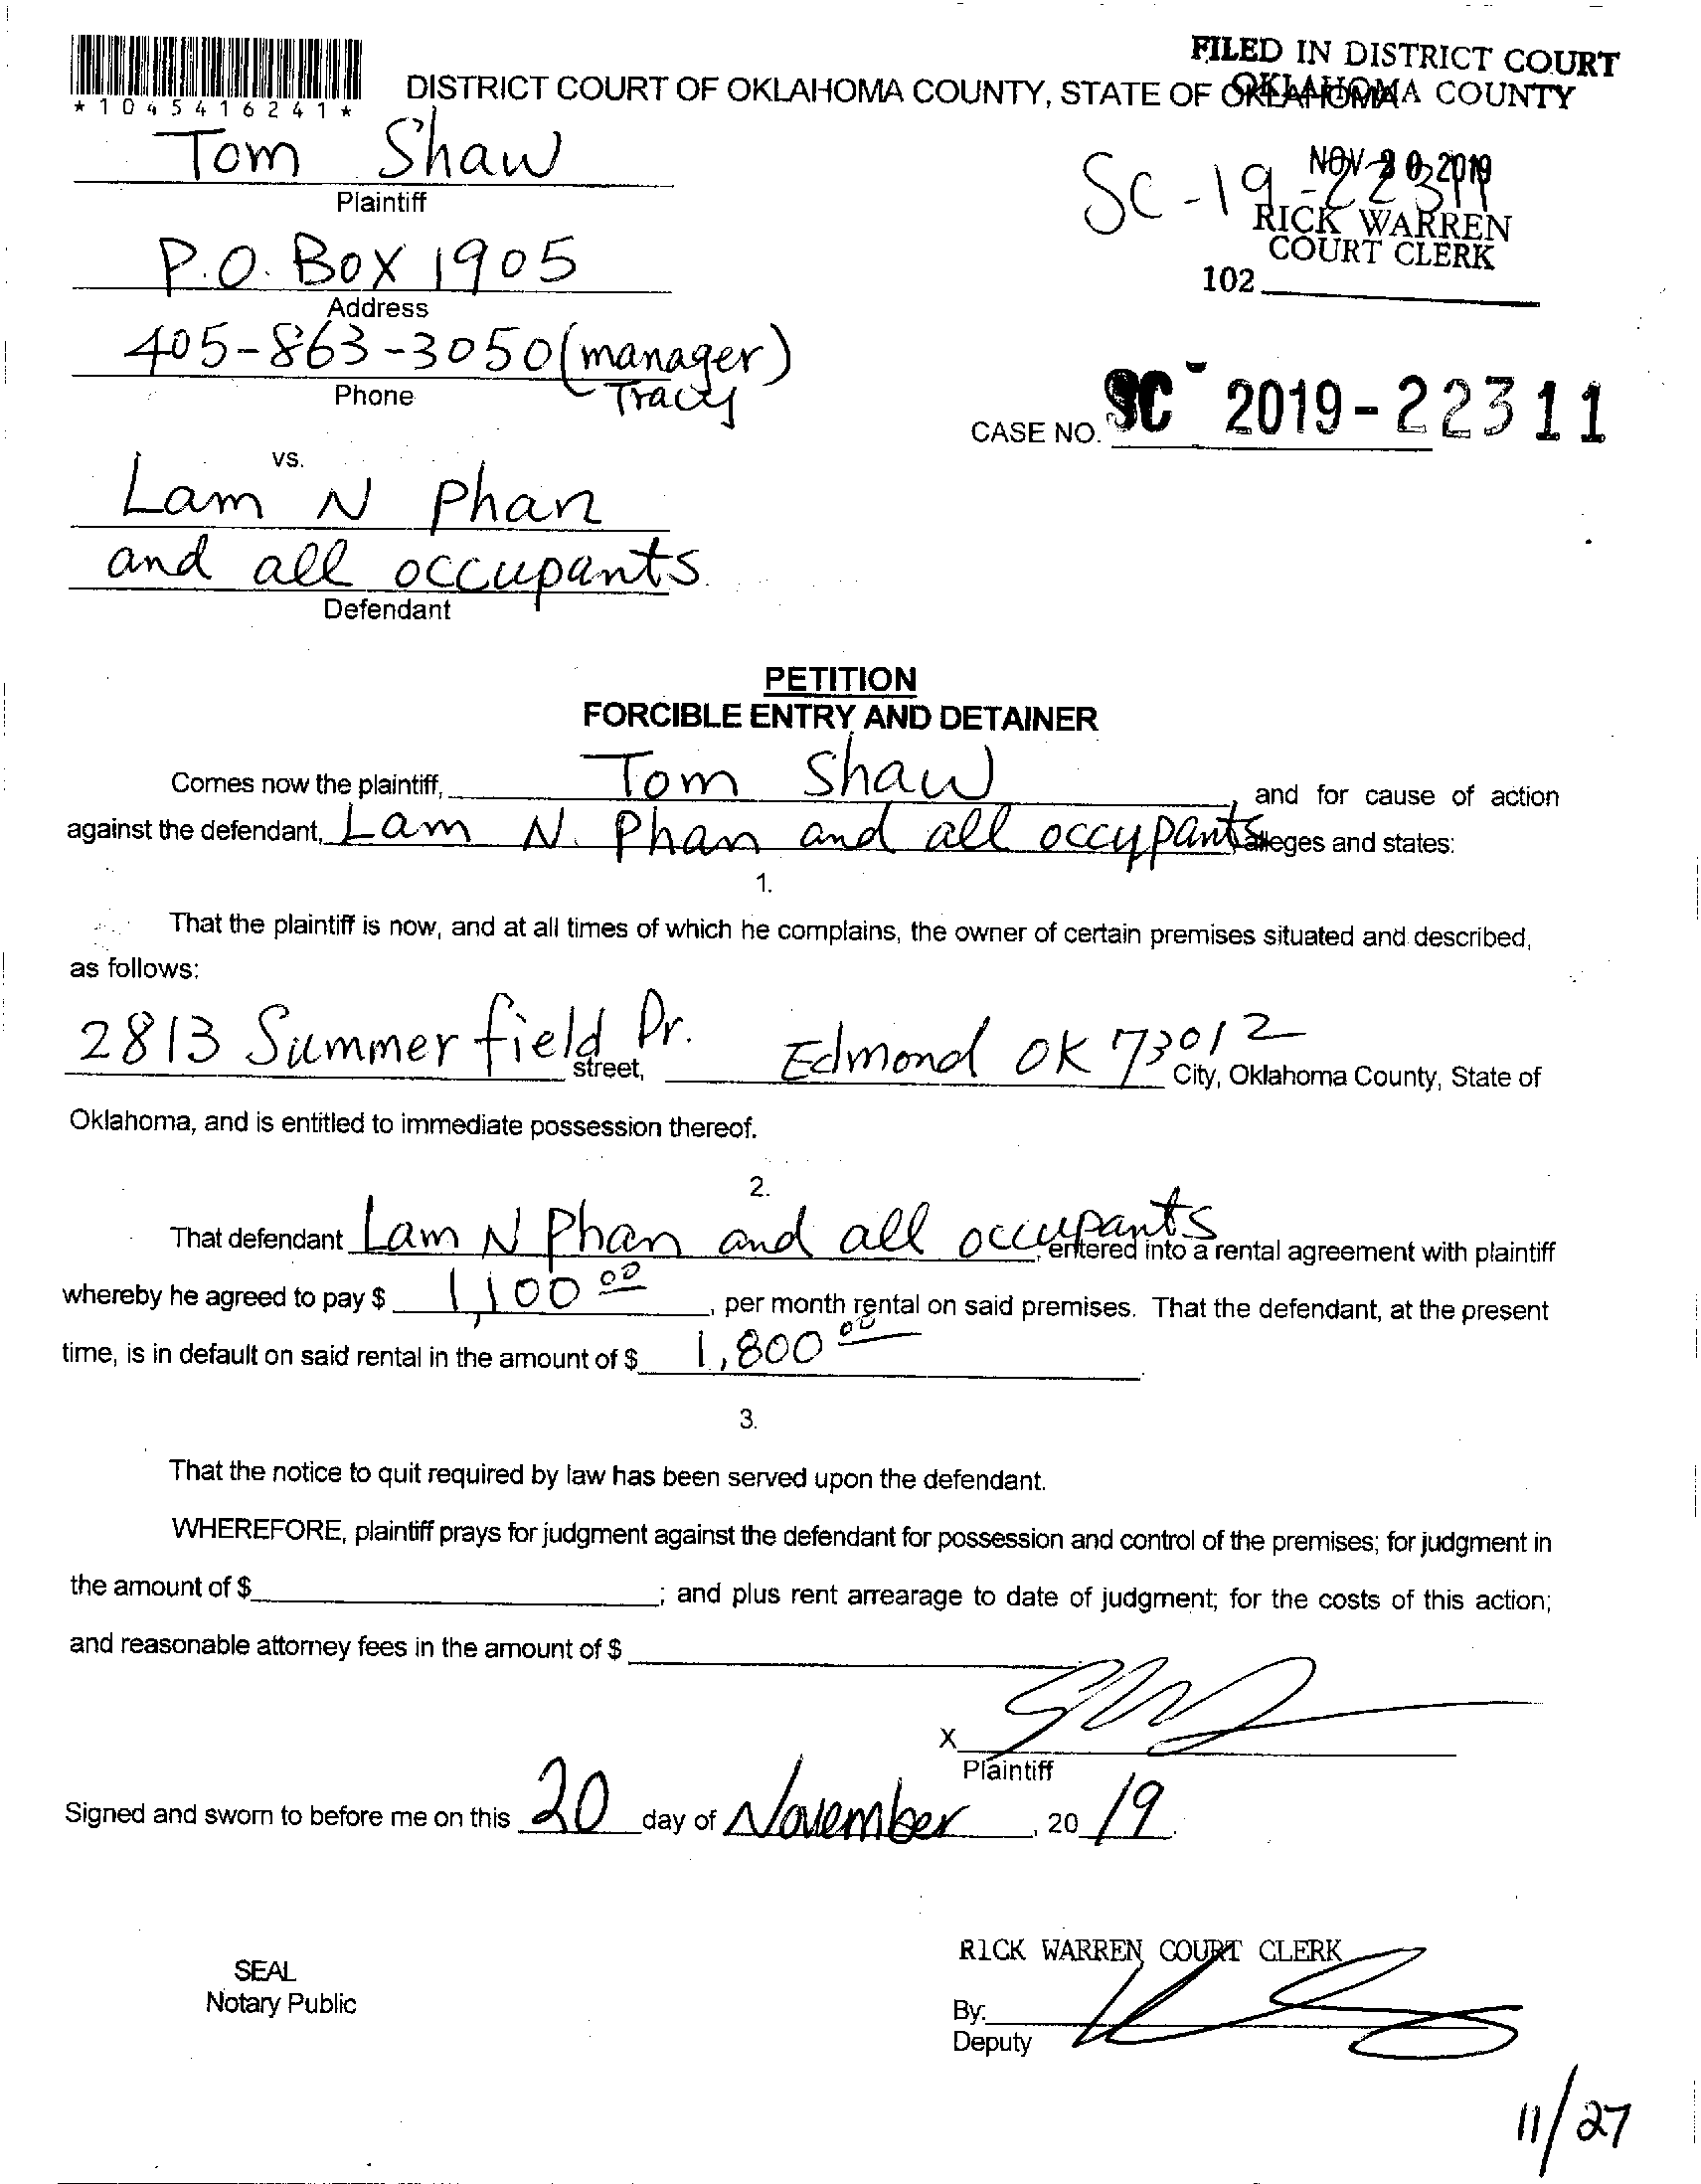 FILED IN DISTRICT COURT
OKLAHOMA COUNTY
*1045416241*
DISTRICT COURT OF OKLAHOMA COUNTY, STATE OF OKLAHOMA
Tom Shaw
Plaintiff
NOV 20 2019
SC-19-22311
RICK WARREN
COURT CLERK
102
P.O. Box 1905
Address
405-863-3050 (manager)
Tracy
Phone
CASE NO. SC 2019-22311
vs.
Lam N Phan
and all occupants
Defendant
PETITION
FORCIBLE ENTRY AND DETAINER
Comes now the plaintiff, Tom Shaw, and for cause of action
against the defendant, Lam N. Phan and all occupants alleges and states:
1.
That the plaintiff is now, and at all times of which he complains, the owner of certain premises situated and described,
as follows:
2813 Summerfield Dr. street, Edmond OK 73012 City, Oklahoma County, State of
Oklahoma, and is entitled to immediate possession thereof.
2.
That defendant Lam N Phan and all occupants, entered into a rental agreement with plaintiff
whereby he agreed to pay $ 1,100 00, per month rental on said premises. That the defendant, at the present
time, is in default on said rental in the amount of $ 1,800 00
3.
That the notice to quit required by law has been served upon the defendant.
WHEREFORE, plaintiff prays for judgment against the defendant for possession and control of the premises; for judgment in
the amount of $ ; and plus rent arrearage to date of judgment; for the costs of this action;
and reasonable attorney fees in the amount of $
X
Plaintiff
Signed and sworn to before me on this 20 day of November, 20 19.
RICK WARREN COURT CLERK
SEAL
Notary Public
By:
Deputy
11/27